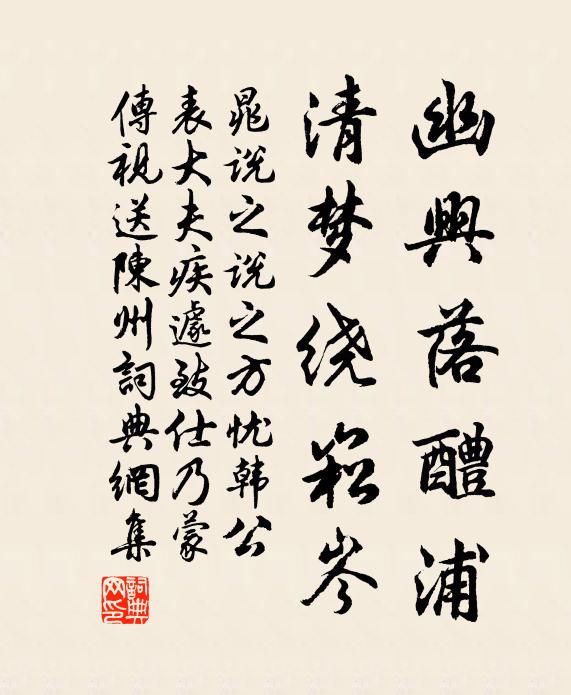 幽興落醴浦
清梦绕嵩岑
晁说之说之方忧韩公
表大夫疾遽致仕乃蒙
傳視送陳州詞典網集
詞典網印